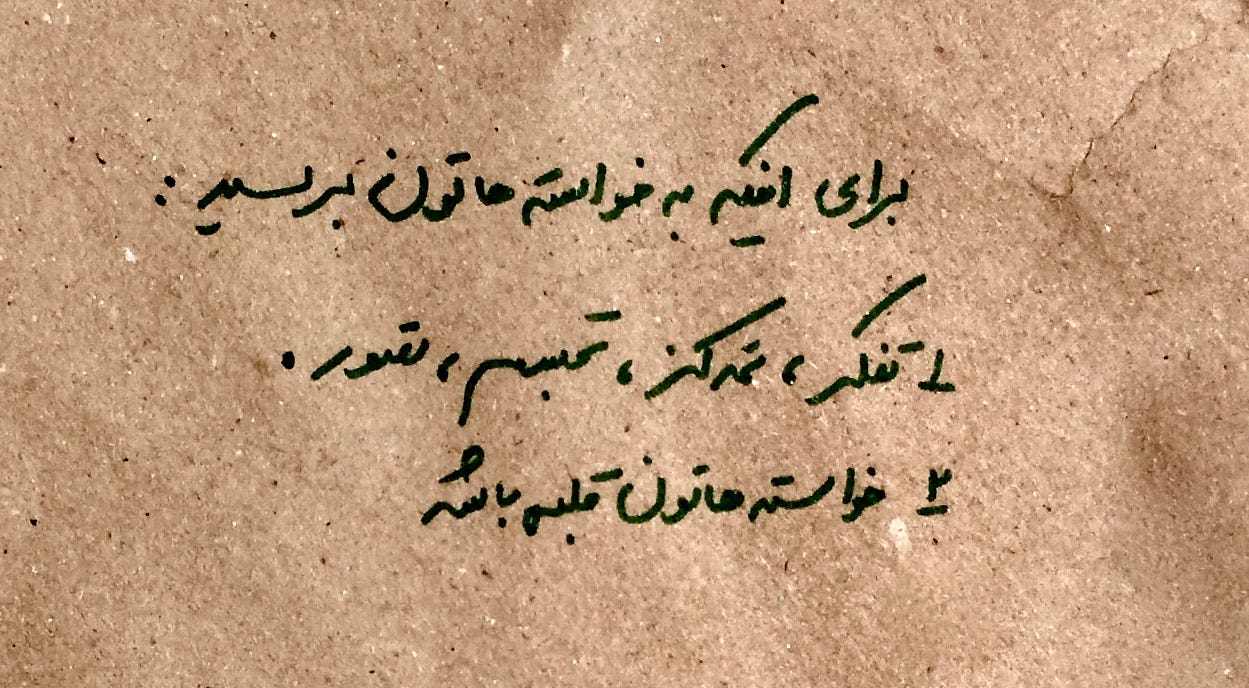 برای اینکه به خواسته هاتون برسید :
۱ تفکر ، تمرکز ، تجسم ، تصور .
۲ خواسته هاتون قلبی باشه